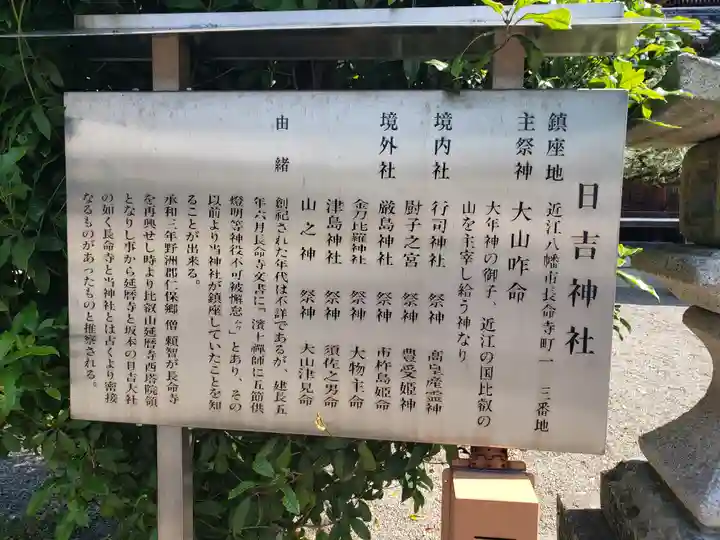 日吉神社
鎮座地 近江八幡市長命寺町一 三番地
主祭神 大山咋命
大年神の御子、近江の国比叡の
山を主宰し給う神なり
境内社 行司神社 祭神 高皇産霊神
厨子之宮 祭神 豊受姫神
境外社 厳島神社 祭神 市杵島姫命
金刀比羅神社 祭神 大物主命
津島神社 祭神 須佐之男命
山之神 祭神 大山津見命
由緒
創祀された年代は不詳であるが、建長五
年六月長命寺文書に「濱上禅師に五節供
燈明等神役不可被懈怠」とあり、その
以前より当神社が鎮座していたことを知
ることが出来る。
承和三年野洲郡仁保郷 僧 頼智が長命寺
を再興せし時より比叡山延暦寺西塔院領
となりし事から延暦寺と坂本の日吉大社
の如く長命寺と当神社とは古くより密接
なるものがあったものと推察される。